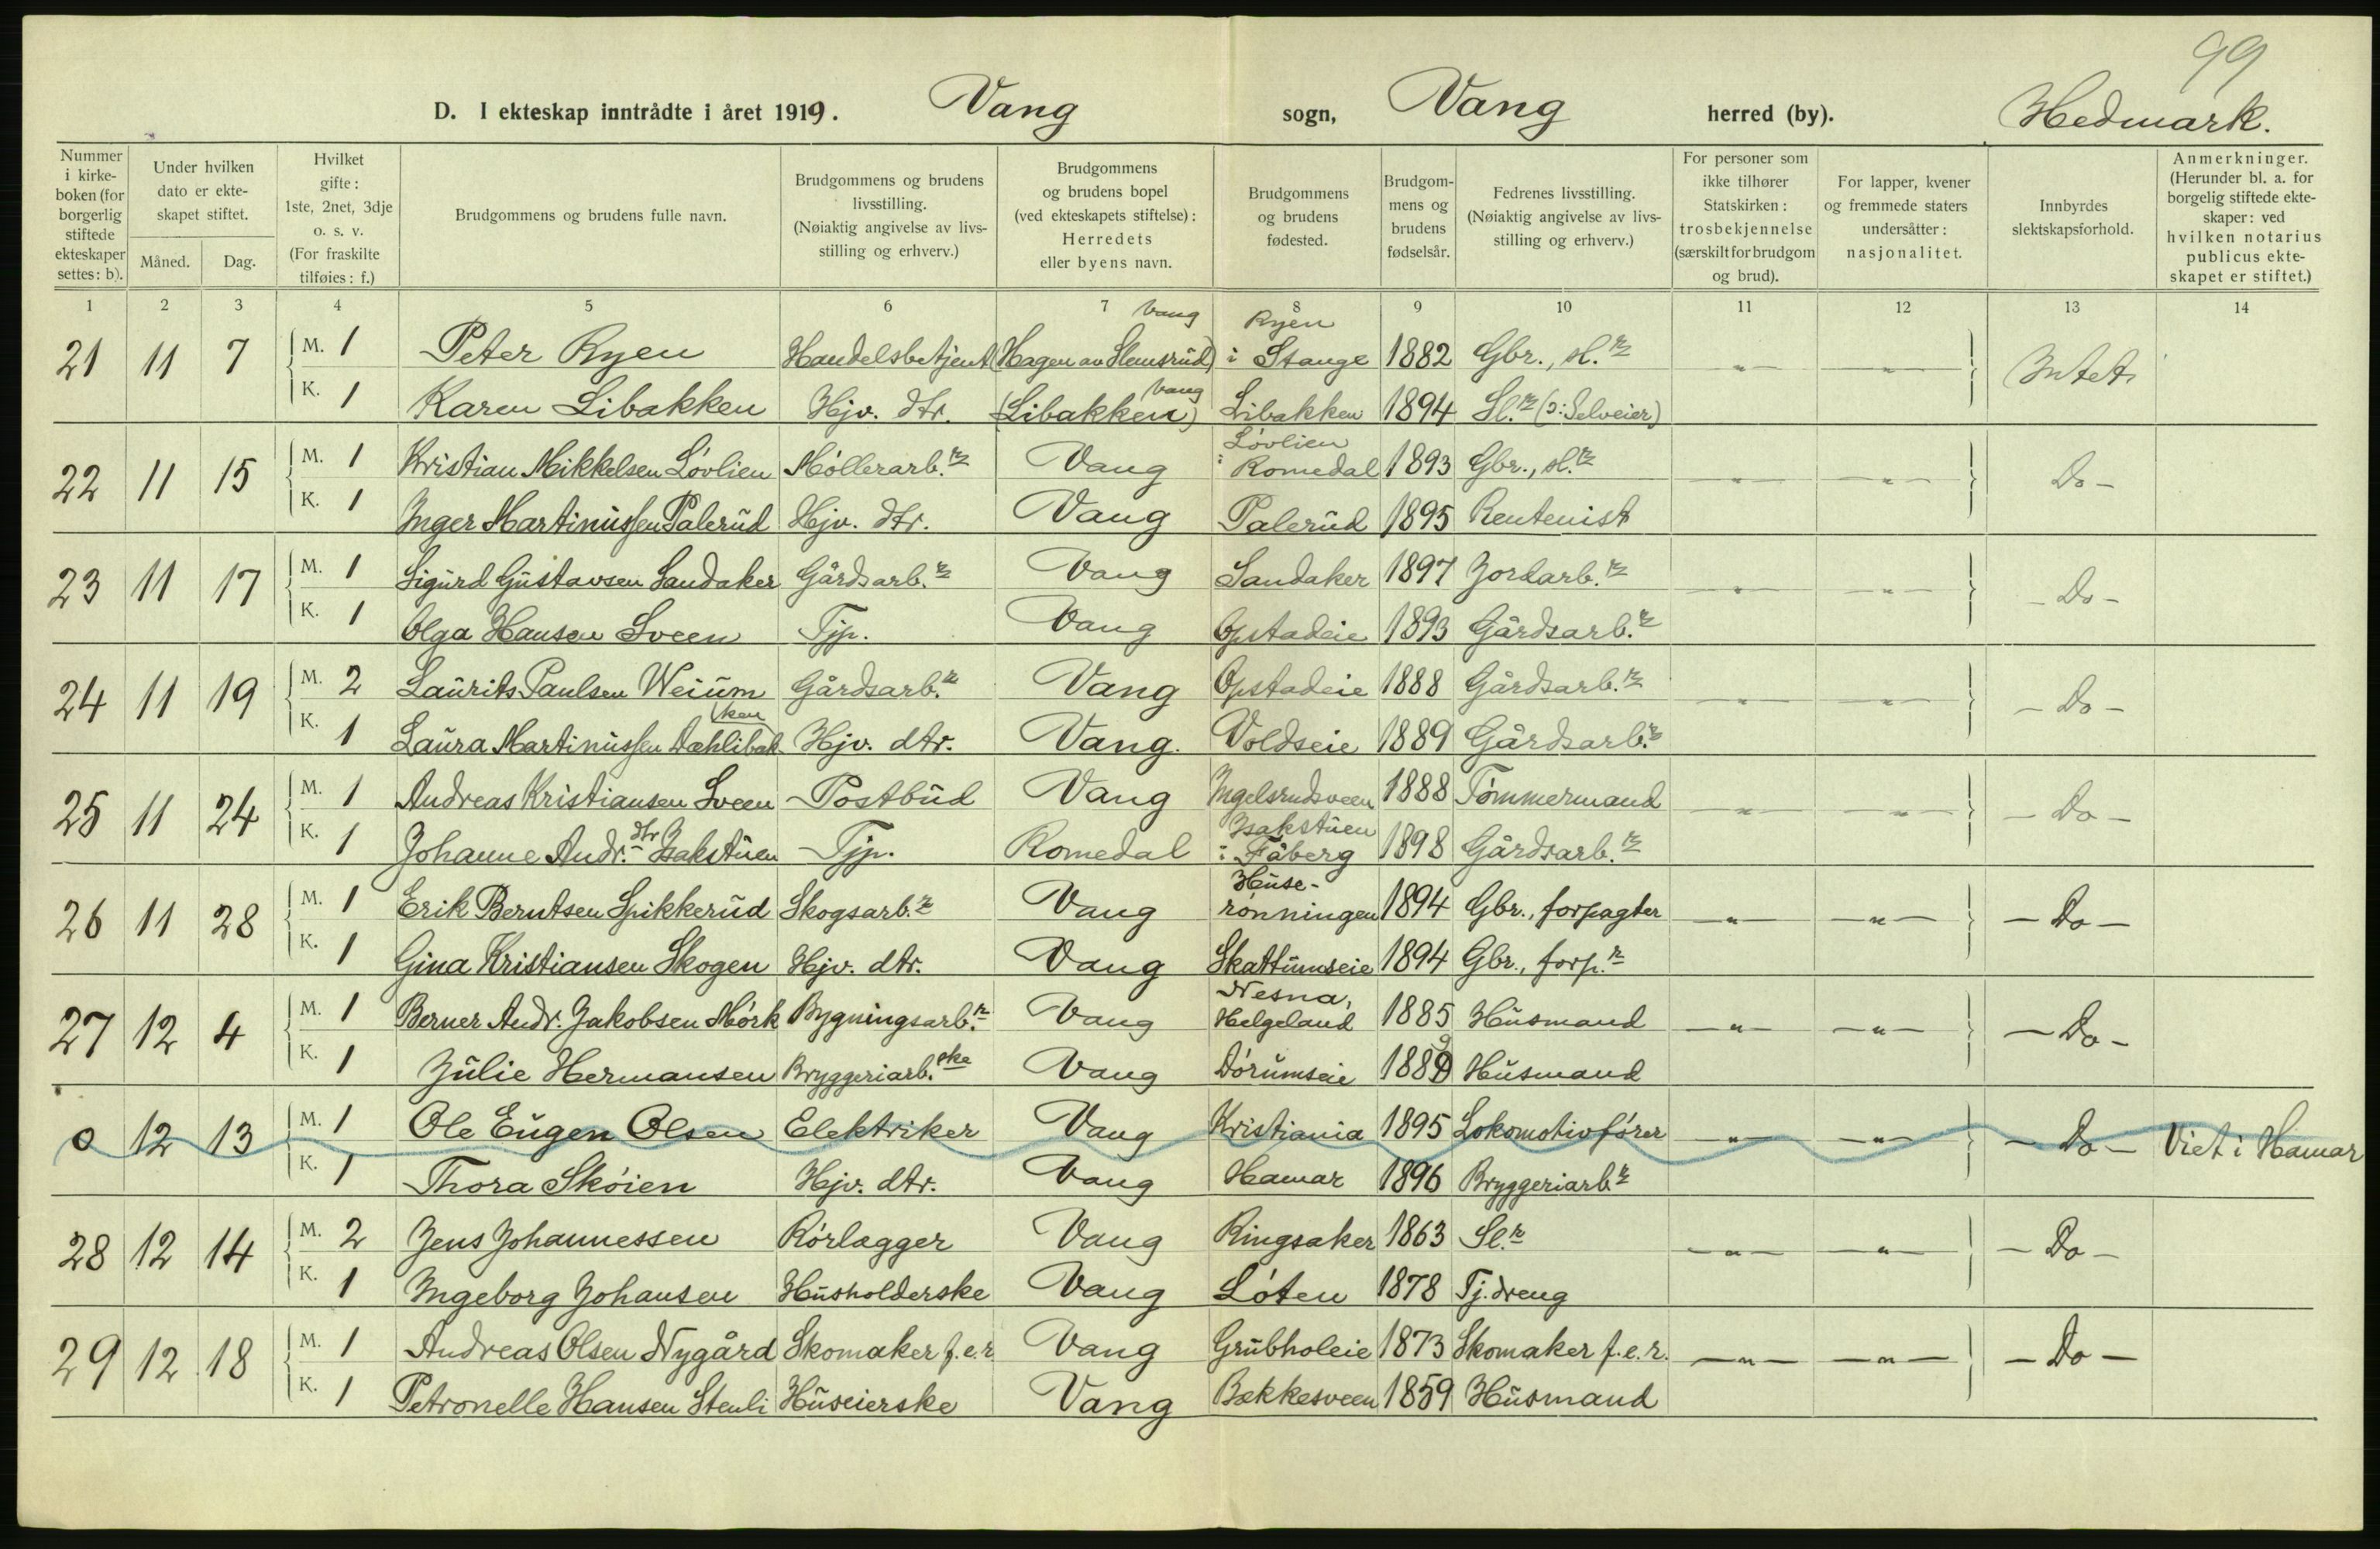 99
D. I ekteskap inntrådte i året 1919. Vang sogn, Vang herred (by). Hedmark.
Nummer i kirke-boken (for borgerlig stiftede ekteskaper settes: b).
Under hvilken dato er ekte-skapet stiftet.
Måned. Dag.
Hvilket gifte: 1ste, 2net, 3dje o. s. v. (For fraskilte tilføies: f.)
Brudgommens og brudens fulle navn.
Brudgommens og brudens livsstilling. (Nøiaktig angivelse av livs-stilling og erhverv.)
Brudgommens og brudens bopel (ved ekteskapets stiftelse): Herredets eller byens navn.
Brudgommens og brudens fødested.
Brudgom-mens og brudens fødselsår.
Fedrenes livsstilling. (Nøiaktig angivelse av livs-stilling og erhverv.)
For personer som ikke tilhører Statskirken: trosbekjennelse (særskilt for brudgom og brud).
For lapper, kvener og fremmede staters undersåtter: nasjonalitet.
Innbyrdes slektskapsforhold.
Anmerkninger. (Herunder bl. a. for borgelig stiftede ekte-skaper: ved hvilken notarius publicus ekte-skapet er stiftet.)
1 2 3 4 5 6 7 8 9 10 11 12 13 14
21 11 7 M. 1 Peter Ryen Handelsbetjent Vang (Hagen av Slemsrud) Ryen i Stange 1882 Gbr., sl.r — " — — " — Intet
K. 1 Karen Libakken Hjv. dtr. Vang (Libakken) Libakken 1894 Sl.r (ɔ: Selveier)
22 11 15 M. 1 Kristian Mikkelsen Lövlien Möllerarb.r Vang Lövlien i Romedal 1893 Gbr., sl.r — " — — " — Do -
K. 1 Inger Martinussen Palerud Hjv. dtr. Vang Palerud 1895 Rentenist
23 11 17 M. 1 Sigurd Gustavsen Sandaker Gårdsarb.r Vang Sandaker 1897 Jordarb.r — " — — " — - Do -
K. 1 Olga Hansen Sveen Tjp. Vang Opstadeie 1893 Gårdsarb.r
24 11 19 M. 2 Laurits Paulsen Weium Gårdsarb.r Vang Opstadeie 1888 Gårdsarb.r — " — — " — - Do -
K. 1 Laura Martinussen Dæhlibakken Hjv. dtr. Vang. Voldseie 1889 Gårdsarb.r
25 11 24 M. 1 Andreas Kristiansen Sveen Postbud Vang Ingelsrudsveen 1888 Tömmermand — " — — " — - Do -
K. 1 Johanne Andr.dtr Isakstuen Tjp. Romedal Isakstuen i Fåberg 1898 Gårdsarb.r
26 11 28 M. 1 Erik Berntsen Spikkerud Skogsarb.r Vang Huse-rönningen 1894 Gbr., forpagter — " — — " — - Do -
K. 1 Gina Kristiansen Skogen Hjv. dtr. Vang Skattumseie 1894 Gbr., forp.r
27 12 4 M. 1 Berner Andr. Jakobsen Mörk Bygningsarb.r Vang Nesna, Helgeland 1885 Husmand — " — — " — - Do -
K. 1 Julie Hermansen Bryggeriarb.ske Vang Dörumseie 1889 Husmand
0 12 13 M. 1 Ole Eugen Olsen Elektriker Vang Kristiania 1895 Lokomotivförer — " — — " — - Do - Viet i Hamar
K. 1 Thora Sköien Hjv. dtr. Vang Hamar 1896 Bryggeriarb.r
28 12 14 M. 2 Jens Johannessen Rörlægger Vang Ringsaker 1863 Sl.r — " — — " — - Do -
K. 1 Ingeborg Johansen Husholderske Vang Löten 1878 Tj.dreng
29 12 18 M. 1 Andreas Olsen Nygård Skomaker f.e.r. Vang Grubholeie 1873 Skomaker f.e.r. — " — — " — - Do -
K. 1 Petronelle Hansen Stenli Huseierske Vang Bækkesveen 1859 Husmand